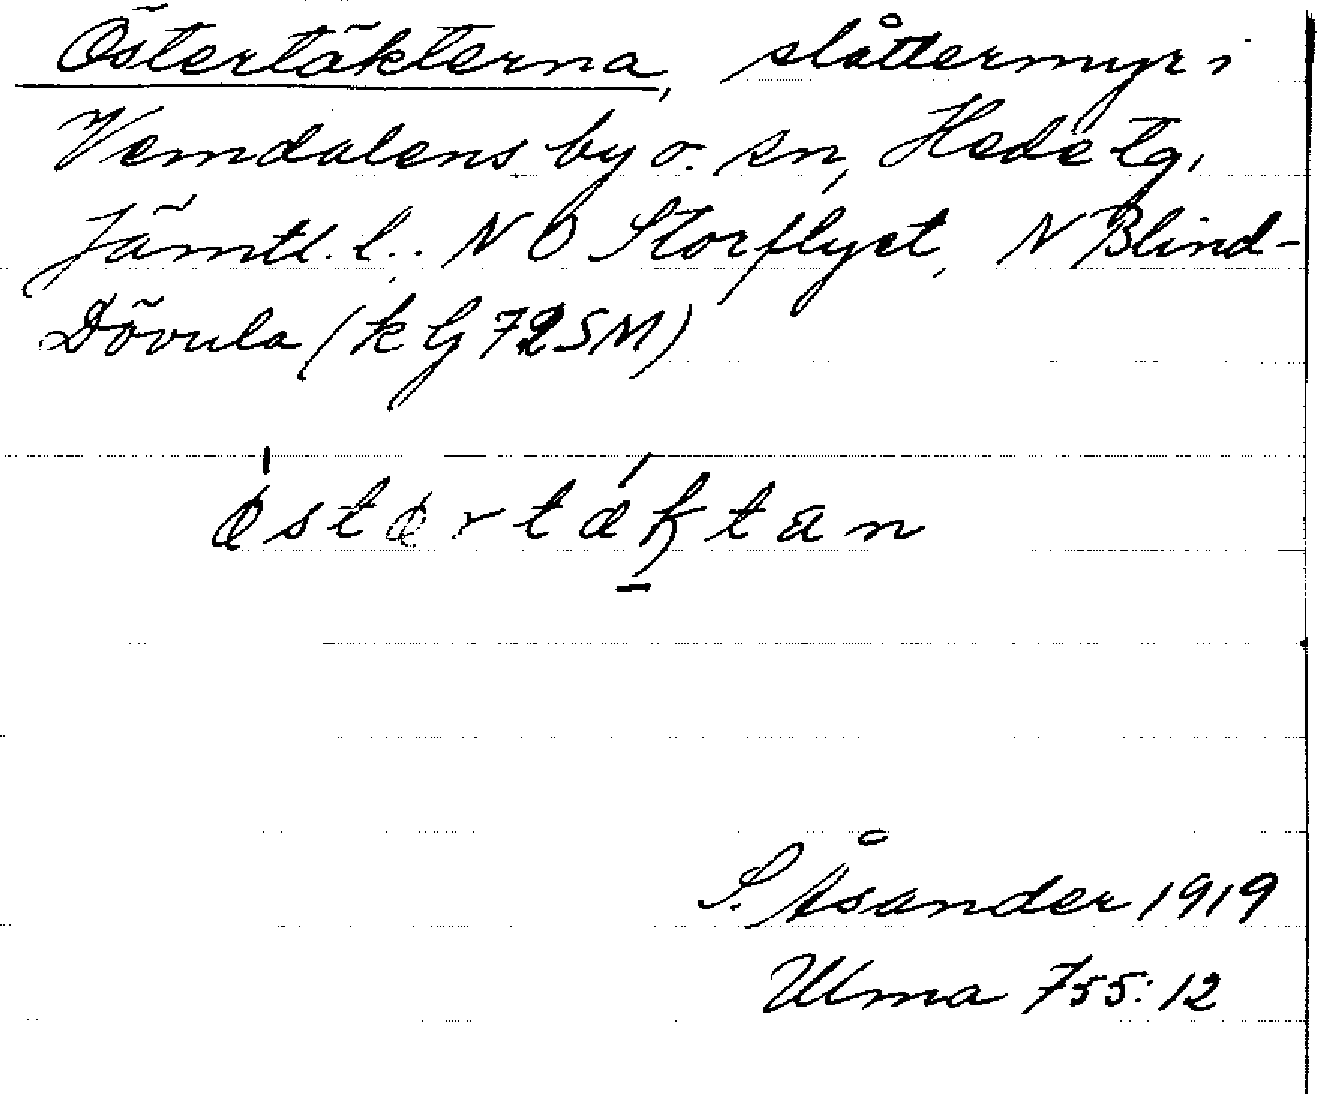 Östertäkterna, slåttermyr i
Vemdalens by o. sn, Hede tg,
Jämtl. l.. N O Storflyet, N Blind-
Dövula (k G 72 SM)
østørtæftan
S. Åsander 1919
Ulma 755:12